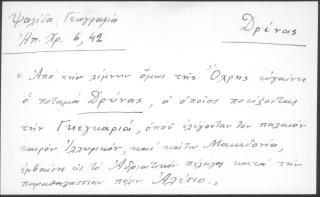 Ψαλίδα, Γεωγραφία
Ἠπ. Χρ. 6, 42
Δρύνας
« Ἀπὸ τὴν λίμνην ὅμως τῆς Ὄχρης εὐγαίνει
ὁ ποταμὸ Δρύνας, ὁ ὁποῖος ποτίζοντας
τὴν Γκεγκαριά, ὁποῦ ἐλέγονταν τὸν παλαιὸν
καιρὸν Ἰλλυρικόν, καὶ κάτω Μακεδονία,
ἐμβαίνει εἰς τὸ Ἀδριατικὸν πέλαγος κατὰ τὴν
παραθαλασσίαν πόλιν Ἀλέσιο. »